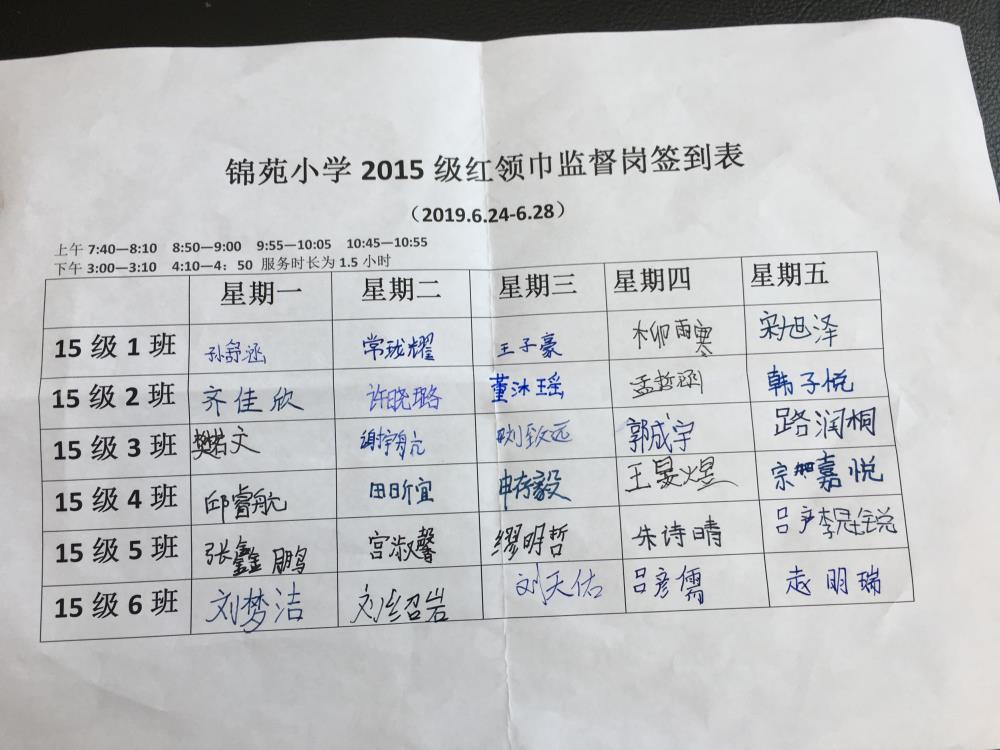 锦苑小学 2015 级红领巾监督岗签到表
（2019.6.24-6.28）
上午 7:40—8:10 8:50—9:00 9:55—10:05 10:45—10:55
下午 3:00—3:10 4:10—4：50 服务时长为 1.5 小时
星期一 星期二 星期三 星期四 星期五
15 级 1 班 孙舒涵 常珑耀 王子豪 柳雨寒 宋旭泽
15 级 2 班 齐佳欣 许晓璐 董沐瑶 孟哲涵 韩子悦
15 级 3 班 樊若文 谢宇航 刘致远 郭成宇 路润桐
15 级 4 班 邱睿航 田昕宜 申存毅 王昱煜 宗嘉悦
15 级 5 班 张鑫鹏 宫淑馨 缪明哲 朱诗晴
15 级 6 班 刘梦洁 刘绍岩 刘天佑 吕彦儒 赵明瑞